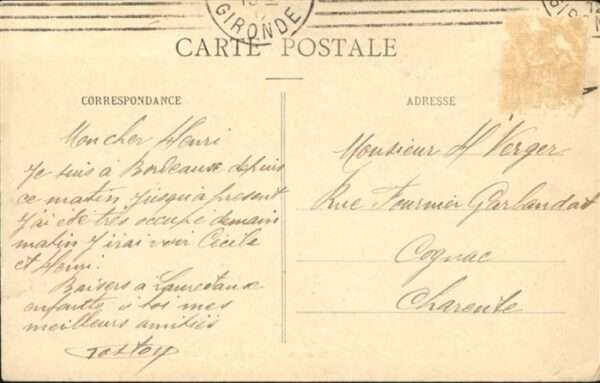 GIRONDE
CARTE POSTALE
CORRESPONDANCE
Mon cher Henri
Je suis à Bordeaux depuis
ce matin, jusqu'à présent
j'ai été très occupé demain
matin j'irai voir Cecile
et Henri.
Baisers à aux
enfants à toi mes
meilleurs amitiés
ADRESSE
Monsieur H Verger
Rue Fournier Garlandat
Cognac
Charente